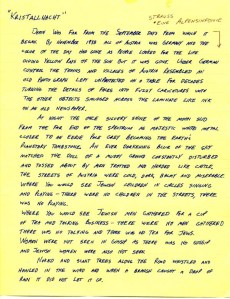 "KRISTALLNACHT"
STRAUSS
"EINE ALPENSINFONIE"
DEATH WAS FAR FROM THE SEPTEMBER DAYS FROM WHICH IT
BEGAN. BY NOVEMBER 1938 ALL OF AUSTRIA WAS GERMANY AND THE
COLOR OF THE SKY HAD GONE AS BEFORE LOOKED FOR THE LONG
DIVING YELLOW RAYS OF THE SUN BUT IT WAS GONE. UNDER GERMAN
CONTROL THE TOWNS AND VILLAGES OF AUSTRIA RESEMBLED AN
OLD PHOTOGRAPH LEFT UNPROTECTED ON A TABLE FOR DECADES
TURNING THE DETAILS OF FACES INTO FULLY CARICATURES WITH
THE OTHER OBJECTS SMUDGED ACROSS THE LAMINATE LIKE INK
ON AN OLD NEWSPAPER.
AT NIGHT THE ONCE SILVERY SHINE OF THE MOON SHED
FROM THE FAR END OF THE SPECTRUM ITS MAJESTIC WHITE METAL
COLOR TO AN EERIE PALE GREY BECOMING THE EARTH'S
PLANETARY TOMBSTONE. AN EVER DARKENING BLACK OF THE SKY
MATCHED THE ROLL OF A MISFIT GROUP CONSTANTLY DISTURBED
AND TOSSED ABOUT BY MEN TREATED AND HERDED LIKE CATTLE.
THE STREETS OF AUSTRIA WERE COLD, DARK, BALMY AND MISERABLE
WHERE YOU WOULD SEE JEWISH CHILDREN IN CIRCLES SINGING
AND PLAYING - THERE WERE NO CHILDREN IN THE STREETS, THERE
WAS NO PLAYING.
WHERE YOU WOULD SEE JEWISH MEN GATHERED FOR A CUP
OF TEA AND TALKING BUSINESS - THERE WERE NO MEN GATHERED
THERE WAS NO TALKING AND THERE WAS NO TEA FOR JEWS.
WOMEN WERE NOT SEEN IN GOSSIP AS THERE WAS NO GOSSIP
AND JEWISH WOMEN WERE ALSO NOT SEEN.
NAKED AND SILENT TREES ALONG THE ROAD WHISTLED AND
HOWLED IN THE WIND AND WHEN A BRANCH CAUGHT A DROP OF
RAIN IT DID NOT LET IT UP.